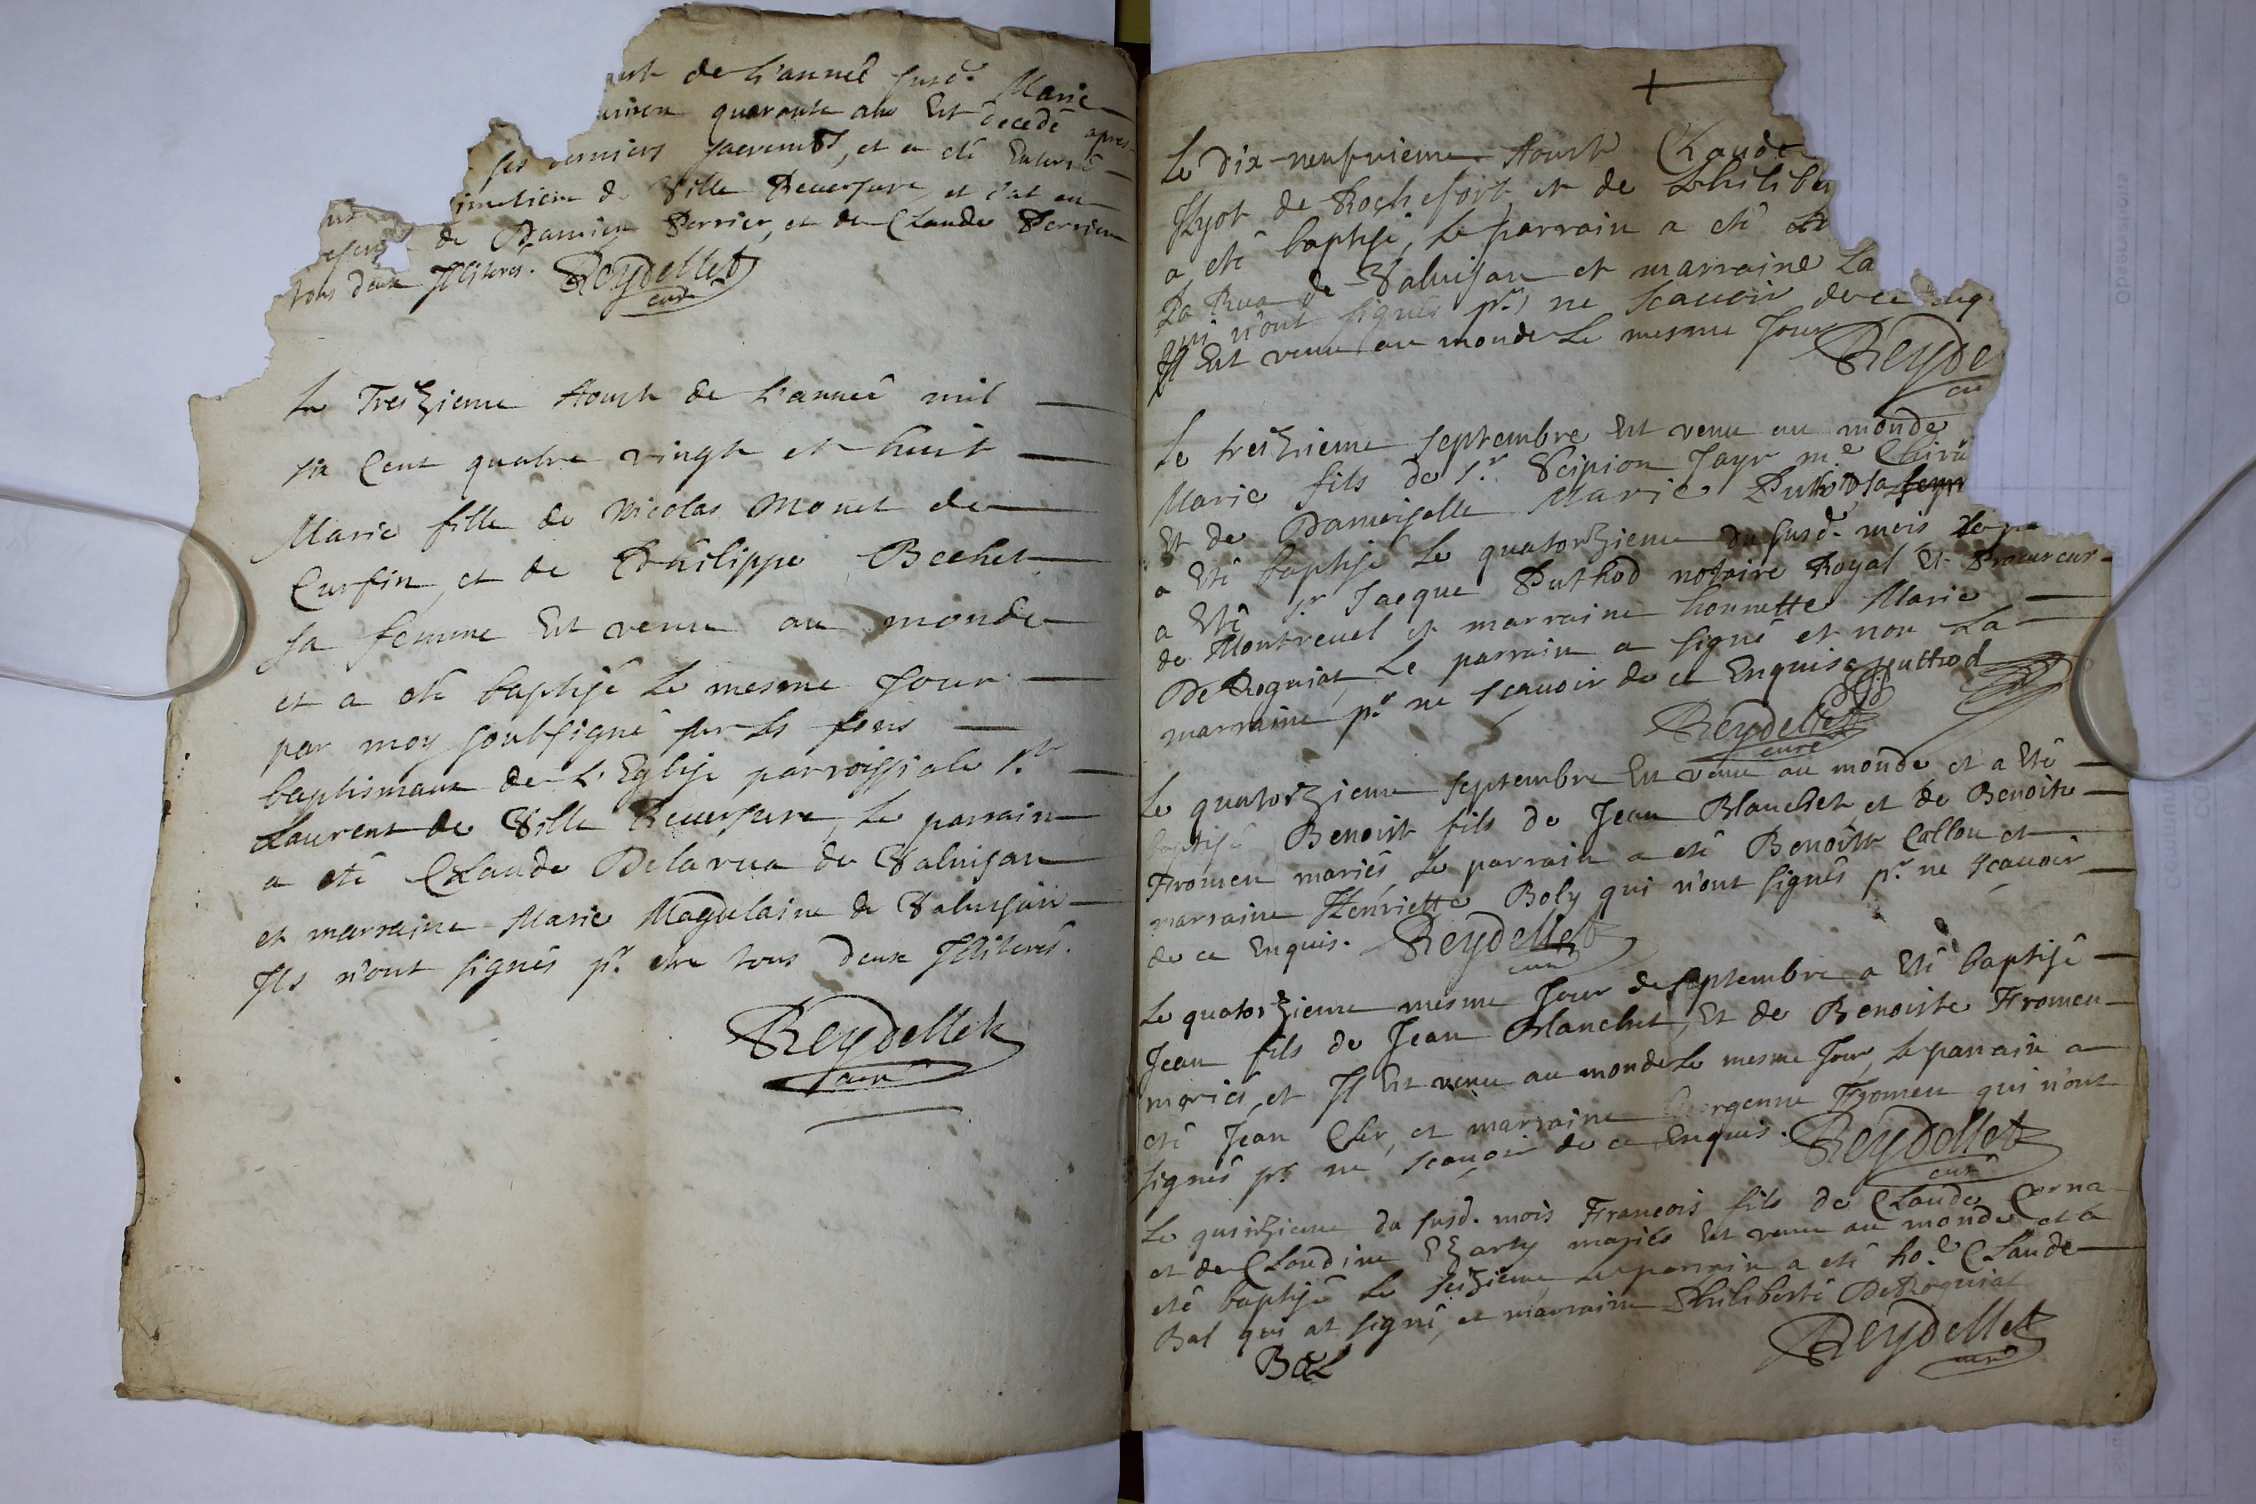 de L'année susd. Marie
quarante ans Est decedé apres
ses derniers sacrements, et a été Enterré
imetiere de Ville Reuersure, et c'at en
de Damien Perrier, et de Claude Perrier
tous deux Illiteres. Reydellet
curé
Le Treizieme Aoust de L'année mil
six Cent quatre vingt et huit
Marie fille de Nicolas Monet de
Curfin, et de Philippe Bechet
sa femme Est venu au monde
et a eté baptisé Le mesme Jour
par moy soubsigné sur Ls fons
baptismaux de L'Eglise parroissiale St
Laurent de Ville Reuersure, Le parrain
a eté Claude Delarua de Valuisan
et marraine Marie Magdelaine de Valuisan
Ils n'ont signés pr. etre tous deux Illiterés.
Reydellet
curé
Le Dix-neufuieme Aoust Claude
Hyot de Rochefort, et de Philiber
a eté baptisé, Le parrain a eté
La Rua de Valuisan et marraine La
qui n'ont signés pr. ne scauoir de ce enq
Il Est venu au monde Le mesme Jour Reyde
cu
Le treizieme septembre Est venu au monde
Marie fils de Sr. Scipion Jayr me. Chiru
Et de Damoiselle Marie Puthod sa
a Eté baptisé Le quatorzieme du susd. mois Le pa
a Eté Sr Jacque Puthod notaire Royal Et Procureur
de Montreuel et marraine honnette Marie
DeRogniat, Le parrain a signé et non La
marraine pr. ne scauoir de ce Enquise puthod
Reydellet
curé
Le quatorzieme septembre Est venu au monde et a Eté
baptisé Benoist fils de Jean Blanchet, et de Benoite
Fromen mariés, Le parrain a eté Benoist Callou et
marraine Henriette Boly qui n'ont signés pr. ne scauoir
de ce Enquis. Reydellet
curé
Le quatorzieme mesme Jour de septembre a Eté baptisé
Jean fils de Jean Blanchet, Et de Benoiste Fromen
mariés, et Il Est venu au monde Le mesme Jour, Le parrain a
eté Jean Cler, et marraine Georgenne Fromen qui n'ont
signés pr. ne scauoir de ce Enquis. Reydellet
curé
Le quinzieme du susd. mois Francois fils de Claude Corna
et de Claudine Ezarty mariés Est venu au monde et a
eté baptisé Le seizieme, Le parrain a eté ho.e Claude
Bal qui at signé, et marraine Philiberte DeRogniat
Bal Reydellet
curé